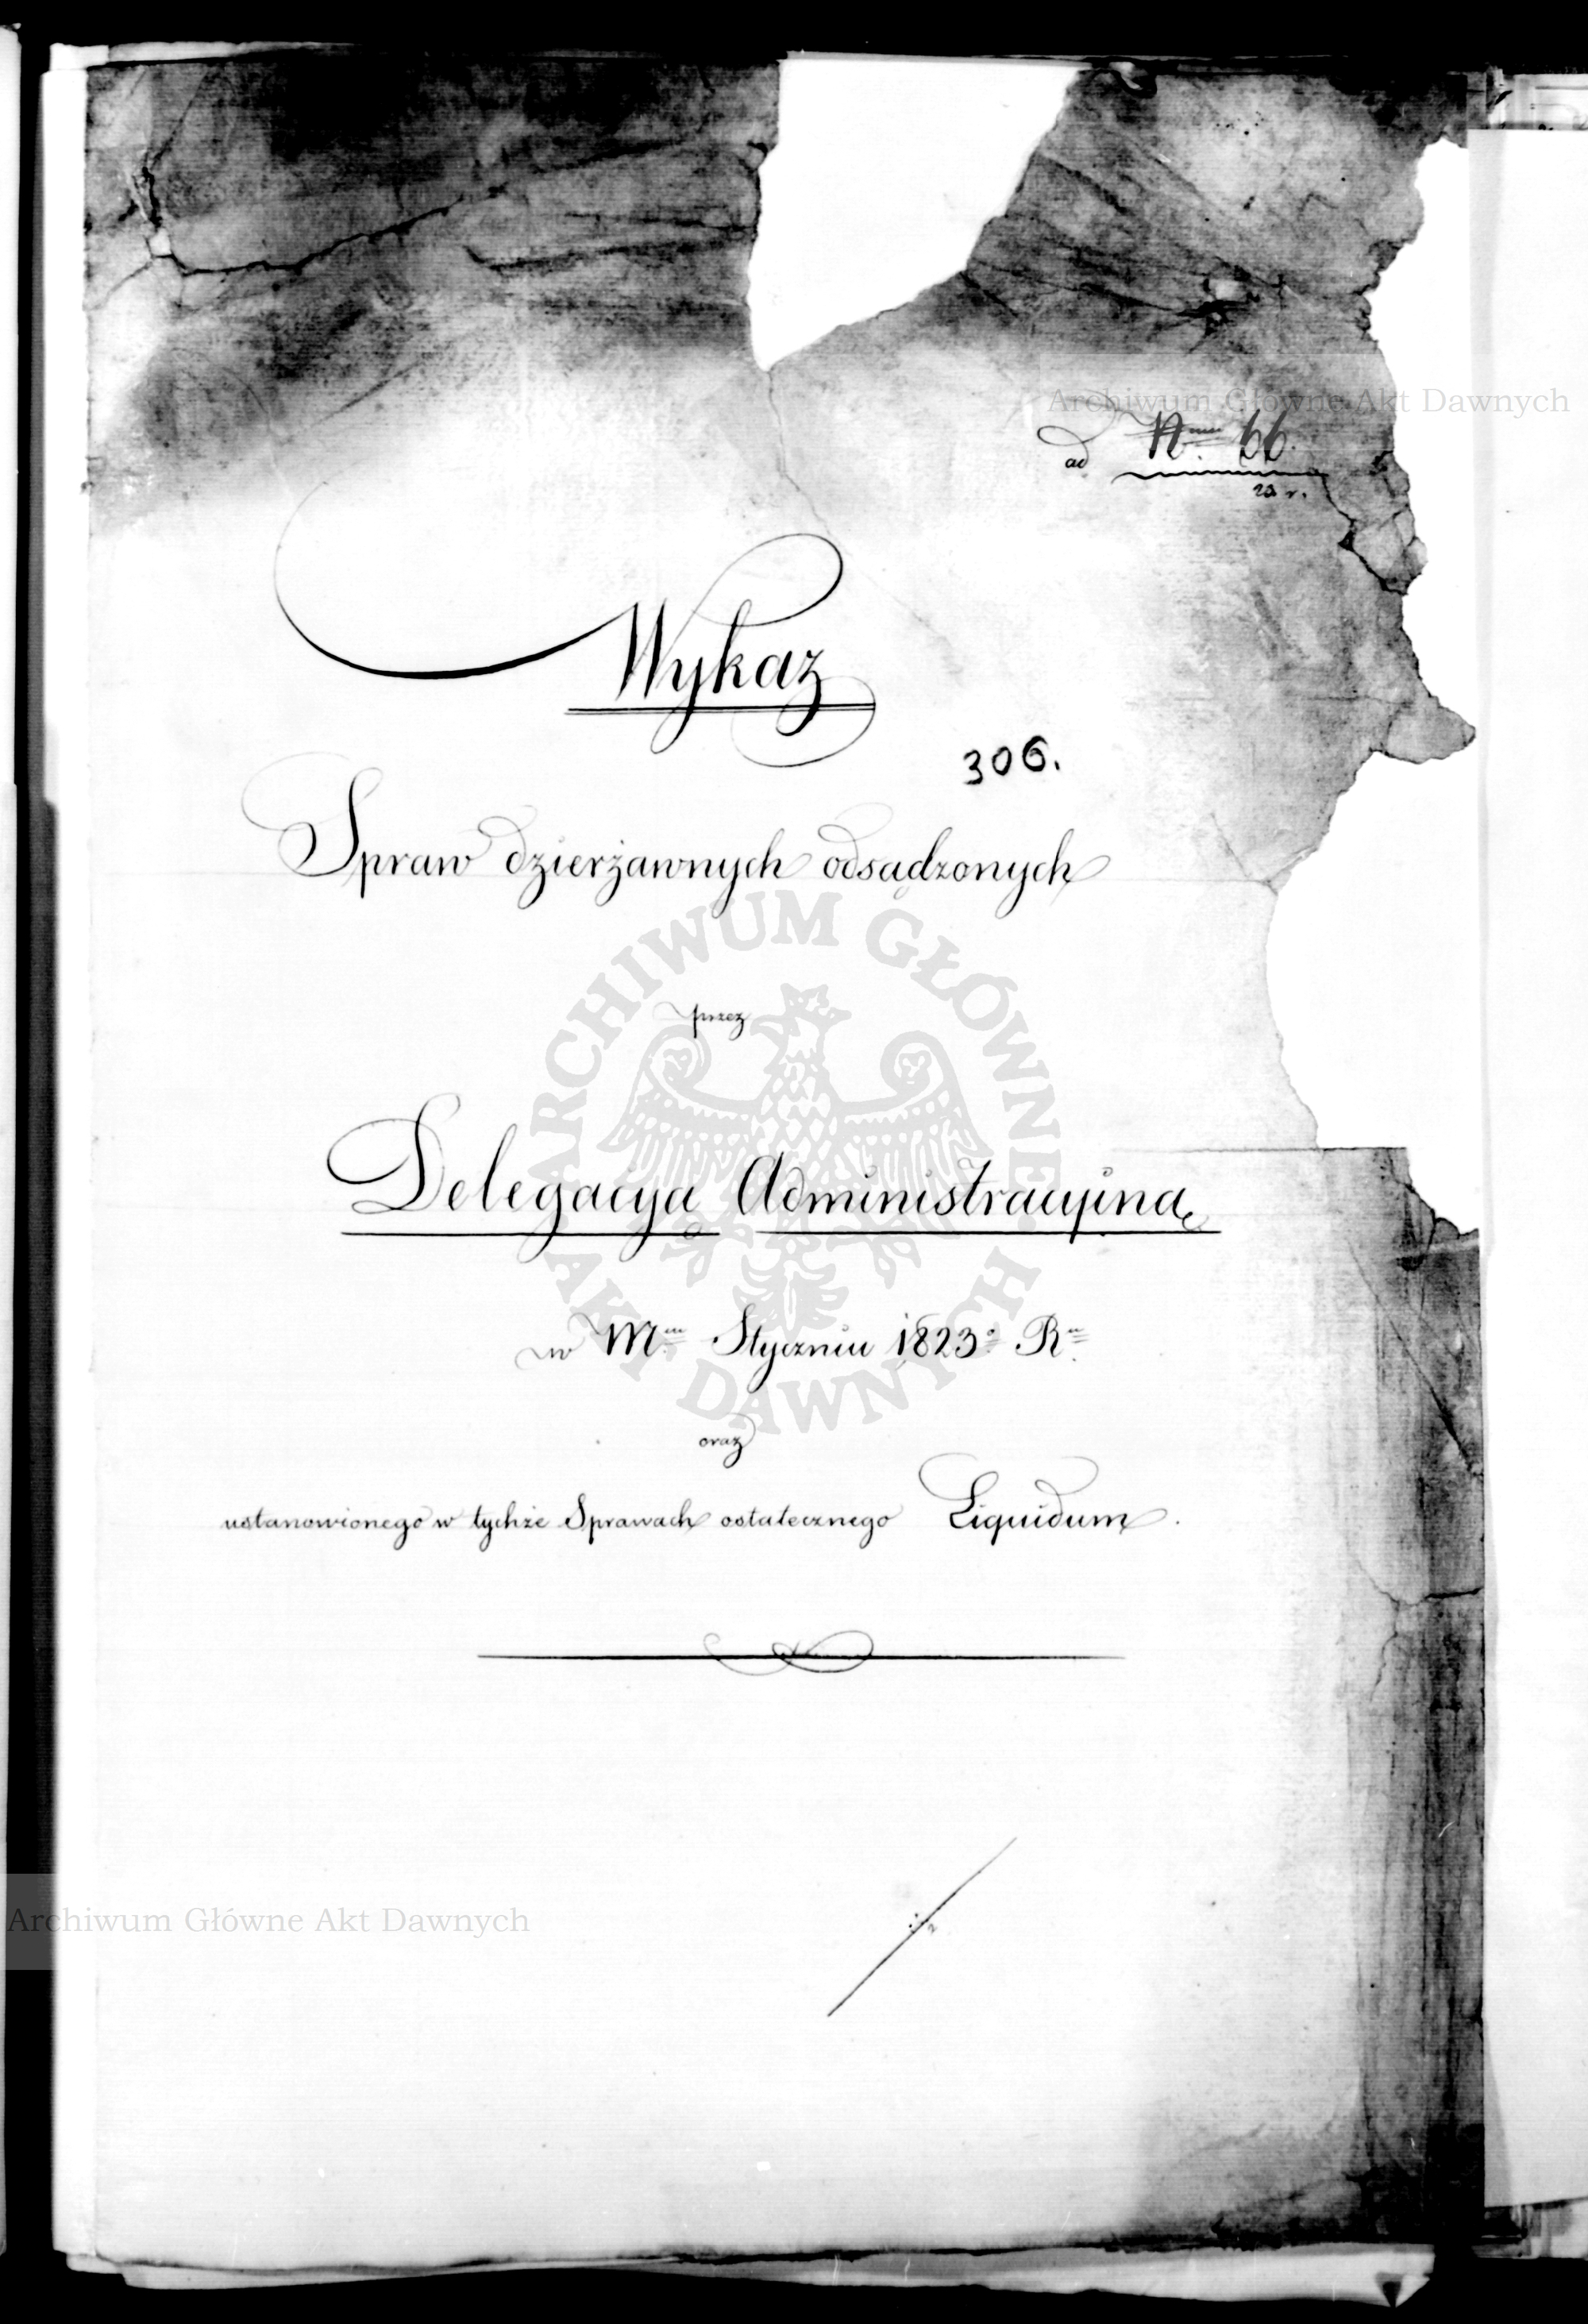 Archiwum Główne Akt Dawnych
ad Nrum 66.
23 r.
Wykaz
306.
Spraw dzierżawnych odsądzonych
przez
Delegacyą Administracyiną
w Mcu Styczniu 1823o Ru
oraz
ustanowionego w tychże Sprawach ostatecznego Liquidum.
ARCHIWUM GŁÓWNE AKT DAWNYCH
Archiwum Główne Akt Dawnych